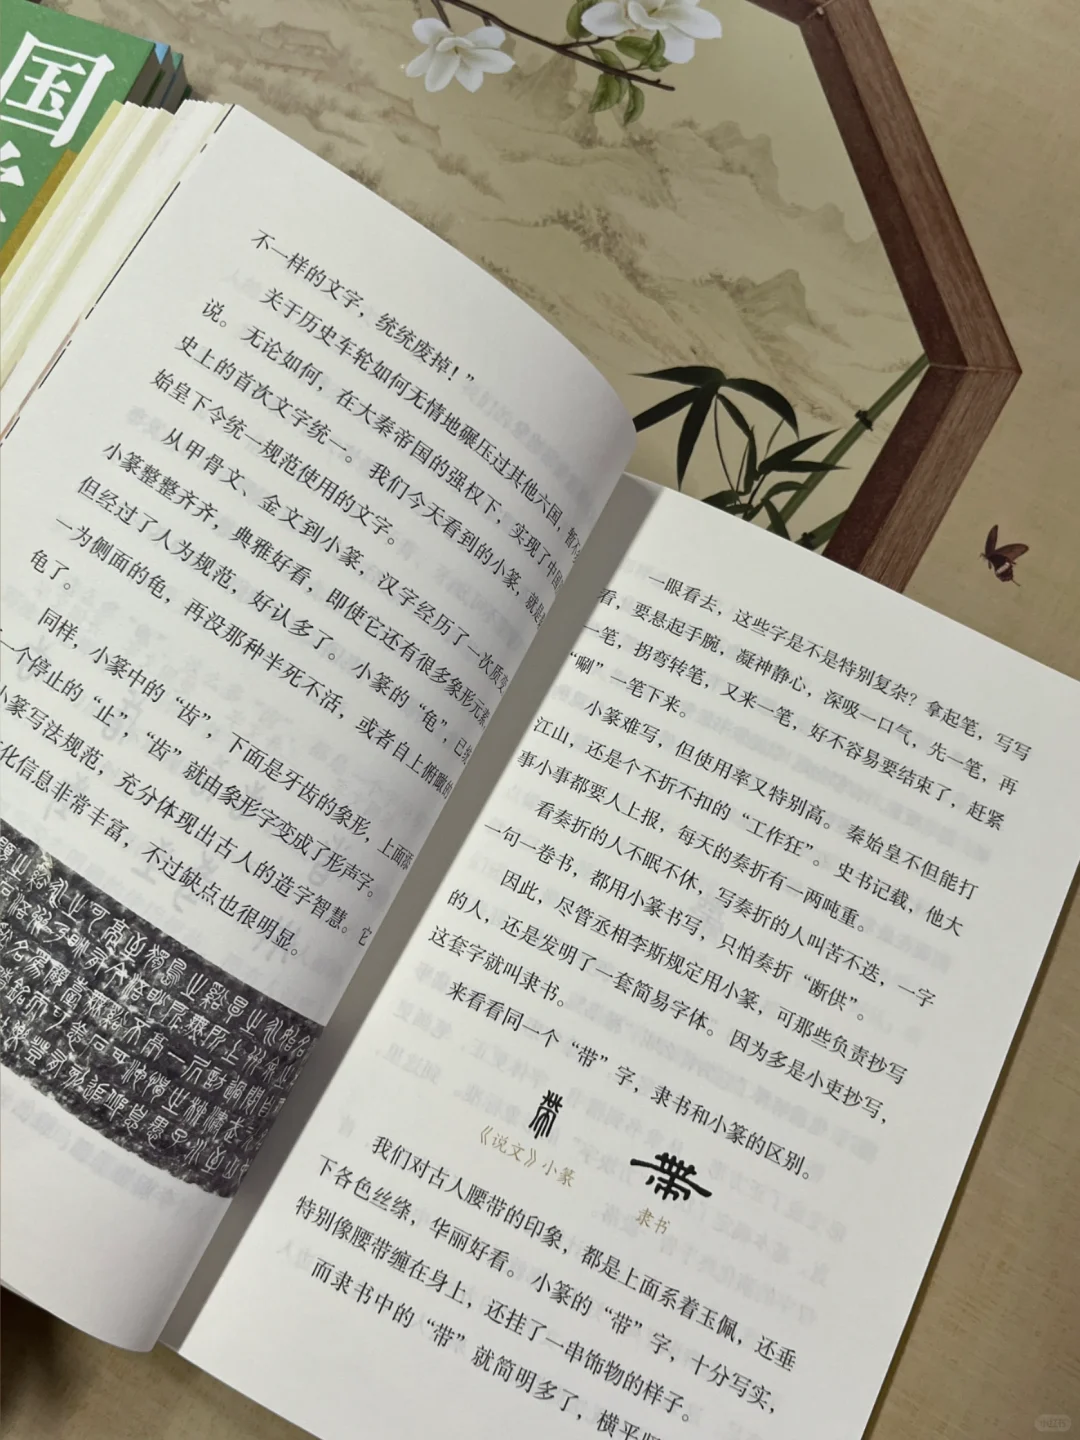 国
不一样的文字，统统废掉！”
关于历史车轮如何无情地碾压过其他六国，暂不
说。无论如何，在大秦帝国的强权下，实现了中国
史上的首次文字统一。我们今天看到的小篆，就是
始皇下令统一规范使用的文字。
从甲骨文、金文到小篆，汉字经历了一次质变
小篆整整齐齐，典雅好看，即使它还有很多象形元素，
但经过了人为规范，好认多了。小篆的“龟”，已
一为侧面的龟，再没那种半死不活，或者自上俯瞰的
龟了。
同样，小篆中的“齿”，下面是牙齿的象形，上面
一个停止的“止”，“齿”就由象形字变成了形声字。
小篆写法规范，充分体现出古人的造字智慧。它
化信息非常丰富，不过缺点也很明显。
一眼看去，这些字是不是特别复杂？拿起笔，写写
看，要悬起手腕，凝神静心，深吸一口气，先一笔，再
一笔，拐弯转笔，又来一笔，好不容易要结束了，赶紧
“唰”一笔下来。
小篆难写，但使用率又特别高。秦始皇不但能打
江山，还是个不折不扣的“工作狂”。史书记载，他大
事小事都要人上报，每天的奏折有一两吨重。
看奏折的人不眠不休，写奏折的人叫苦不迭，一字
一句一卷书，都用小篆书写，只怕奏折“断供”。
因此，尽管丞相李斯规定用小篆，可那些负责抄写
的人，还是发明了一套简易字体。因为多是小吏抄写，
这套字就叫隶书。
来看看同一个“带”字，隶书和小篆的区别。
《说文》小篆
隶书
我们对古人腰带的印象，都是上面系着玉佩，还垂
下各色丝绦，华丽好看。小篆的“带”字，十分写实，
特别像腰带缠在身上，还挂了一串饰物的样子。
而隶书中的“带”就简明多了，横平
小红书